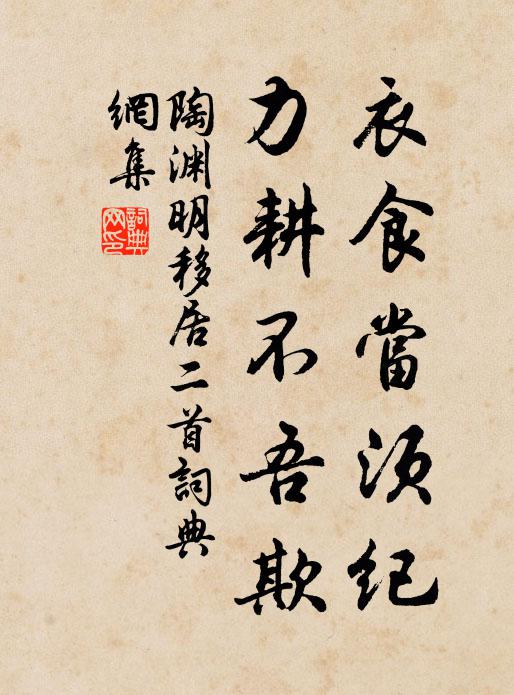 衣食當須紀
力耕不吾欺
陶淵明移居二首詞典
網集
詞典网印